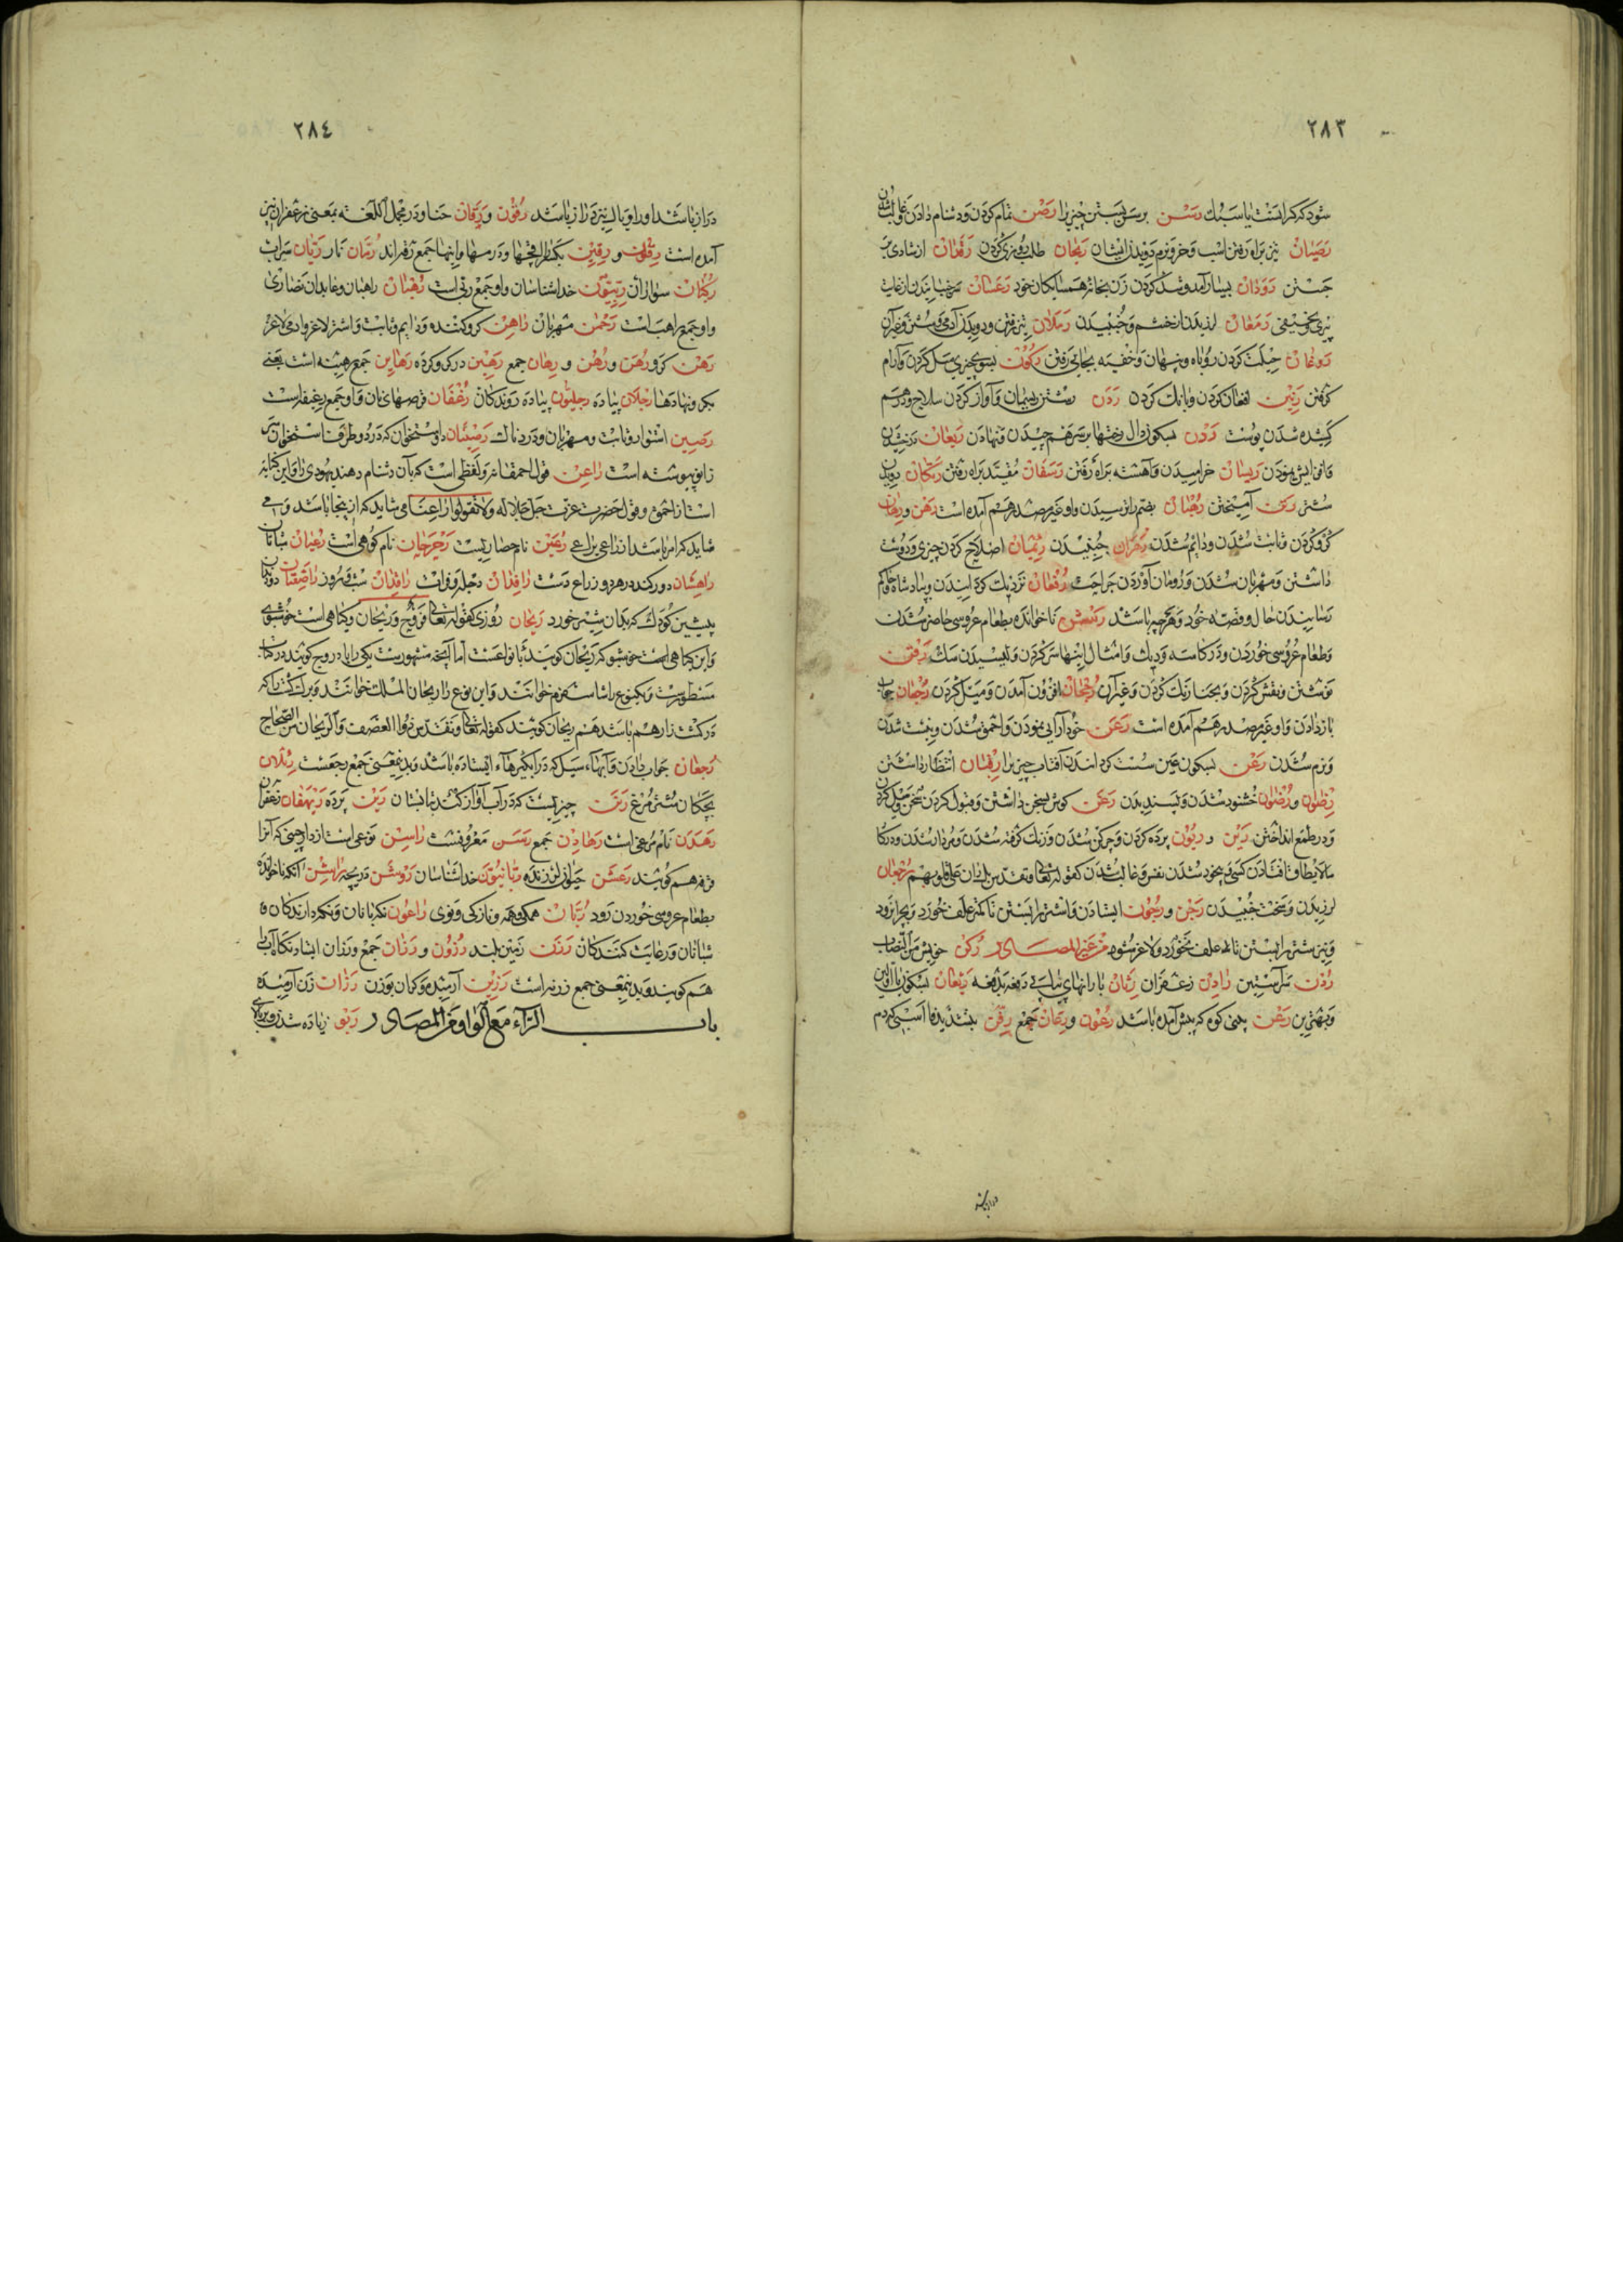 ٢٨٣
شود که کرانست یا سبک رسن برسن بستن چیزیرا رصن تمام کردن و دشنام دادن
رصیان تیز براه رفتن اسب و خر و نرم دویدن ایشان ریحان طلب روزی کردن رقصان از شادی بر
جستن رودان بسیار آمد و شد کردن زن بخانهٔ همسایکان خود رعسان سر جنبانیدن از غایت
پیری رمعان لرزیدن از خشم و جنبیدن رملان تیز رفتن و دویدن آدمی و شتر و غیر آن
روغان حیلت کردن روباه و پنهان و خفیه بجائی رفتن رکون بسوی چیزی میل کردن و آرام
کرفتن رنین افغان کردن و بانک کردن ردن رشتن ریسمان و آواز کردن سلاح و درهم
کشیده شدن پوست ردن بسکون دال رختها بر سر هم چیدن و نهادن ریعان
و افزایش نمودن ریسان خرامیدن و آهسته براه رفتن رسفان مقید براه رفتن رتکان دویدن
شتر رتن آمیختن رهبان بضم را ترسیدن و او غیر مصدر هم آمده است رهن و رهان
کرو کردن و ثابت شدن و دائم شدن رهزان جنبیدن رثمان اصلاح کردن چیزی و دوست
داشتن و مهربان شدن و درمان آوردن جراحت رفعان نزدیک کردانیدن و پادشاه حاکم
رسانیدن حال و قصهٔ خود و هر چه باشد رشن ناخوانده بطعام عروسی حاضر شدن
و طعام عروسی خوردن و در کاسه و دیک و امثال اینها سر کردن و لیسیدن سک رقن
نوشتن و نقش کردن و بحنا رنک کردن و غیر آن رجحان افزون آمدن و میل کردن رجعان جواب
باز دادن و او غیر مصدر هم آمده است رعن خود آرایی نمودن و احمق شدن و سست شدن
و نرم شدن رعن بسکون عین سست کردانیدن آفتاب چیزیرا رقبان انتظار داشتن
رضوان و رضوان خشنود شدن و پسندیدن رعن کوش بسخن داشتن و قبول کردن سخن و میل کردن
و در طمع انداختن رین و ریون پرده کردن و چرکن شدن و زنک کرفته شدن و مردار شدن و در کار
ملا یطاق افتادن کسی و بیخود شدن نفس و غالب شدن کقوله تعالی و تقدس بل ران علی قلوبهم رجفان
لرزیدن و سخت جنبیدن رجن و رجون ایستادن و اشتر را بستن تا کمتر علف خورد و بچرا نرود
و نیز شتر را بستن تا علف نخورد و لاغر شود من غیر المصادر رکن خویش من النصاب
ردن سر آستین رادن زعفران رثان بارانهای پیاپی دفعه بدفعه ریعان بسکون یا اولین
و بهترین رعن بینی کوه که پیش آمده باشد رعون و رعان جمع رفن بتشدید فا اسبی که دم
٢٨٤
دراز باشد او را و یال نیز دراز باشد رقون و رقان حنا و در مجمل اللغة بمعنی زعفران نیز
آمده است رقان و رقین
رکبان سواران ربیون خداشناسان و او جمع ربی است رهبان راهبان و عابدان نصاری
و او جمع راهب است رحمن مهربان راهن کرو کننده و دایم و ثابت و اشتر لاغر و آدمی لاغر
رهن کرو و رهن و رهن و رهان جمع رهین در کرو کرده رهاین جمع رهینه است یعنی
بکرو نهادها رجلان پیاده رجلیون پیاده روندکان رغفان قرصهای نان و او جمع رغیف است
رصین استوار و ثابت و مهربان و دردناک رصینان دو استخوان که در دو طرف استخوان سر
زانو پیوسته است راعن قول احمقانه و لفظی است که بآن دشنام دهند یهودی را و این کنایه
است از احمق و قول حضرت عزت جل جلاله و لا تقولوا راعنا می شاید که از اینجا باشد و می
شاید که امر باشد از راعی یراعی رعین نام حصاریست رجرجان نام کوهی است رعیان شبانان
راهشان دو رک در هر دو ذراع دست رافدان دجله و فرات رافدان شب و روز راضعتان دو دندان
پیشین کودک که بدان شیر خورد ریحان روزی کقوله تعالی فروح و ریحان و کیاهی است خوشبوی
و این کیاهی است خوشبو که ریحان کویند و انواعست اما آنچه مشهورست یکی را بادروج کویند در کتاب
مسطورست و یک نوع را شاسفرم خوانند و این نوع را ریحان الملک خوانند و برک کشت را که
در کشت زار هم باشد هم ریحان کویند کقوله تعالی و تقدس ذو العصف و الریحان من الصحاح
رجعان جواب دادن و آبهاء سیل که در آبکیرهاء ایستاده باشد و بدینمعنی جمع رجعست رئلان
بچکان شتر مرغ رنن چیزیست که در آب آواز کند تابستان رین پرده ریهقان زعفران
رهدن نام مرغی است رهادن جمع رسن معروفست راسن نوعی است از دارچینی که آنرا
قرفه هم کویند رعشن جانور لرزنده ربانیون خداشناسان روشن دریچه راشن آنکه ناخوانده
بطعام عروسی خوردن رود ربان همکی و همه و نازکی و نوی راعون نکهبانان و نکهدارندکان و
شبانان و رعایت کنندکان رزن زمین بلند رزون و رزان جمع و رزان ایستادنکاه آب را
هم کویند و بدینمعنی جمع رزنه است رزین آرمیده و کران بوزن رزان زن آرمیده
باب الراء مع الواو من المصادر ربو زیاده شدن و بر بالای